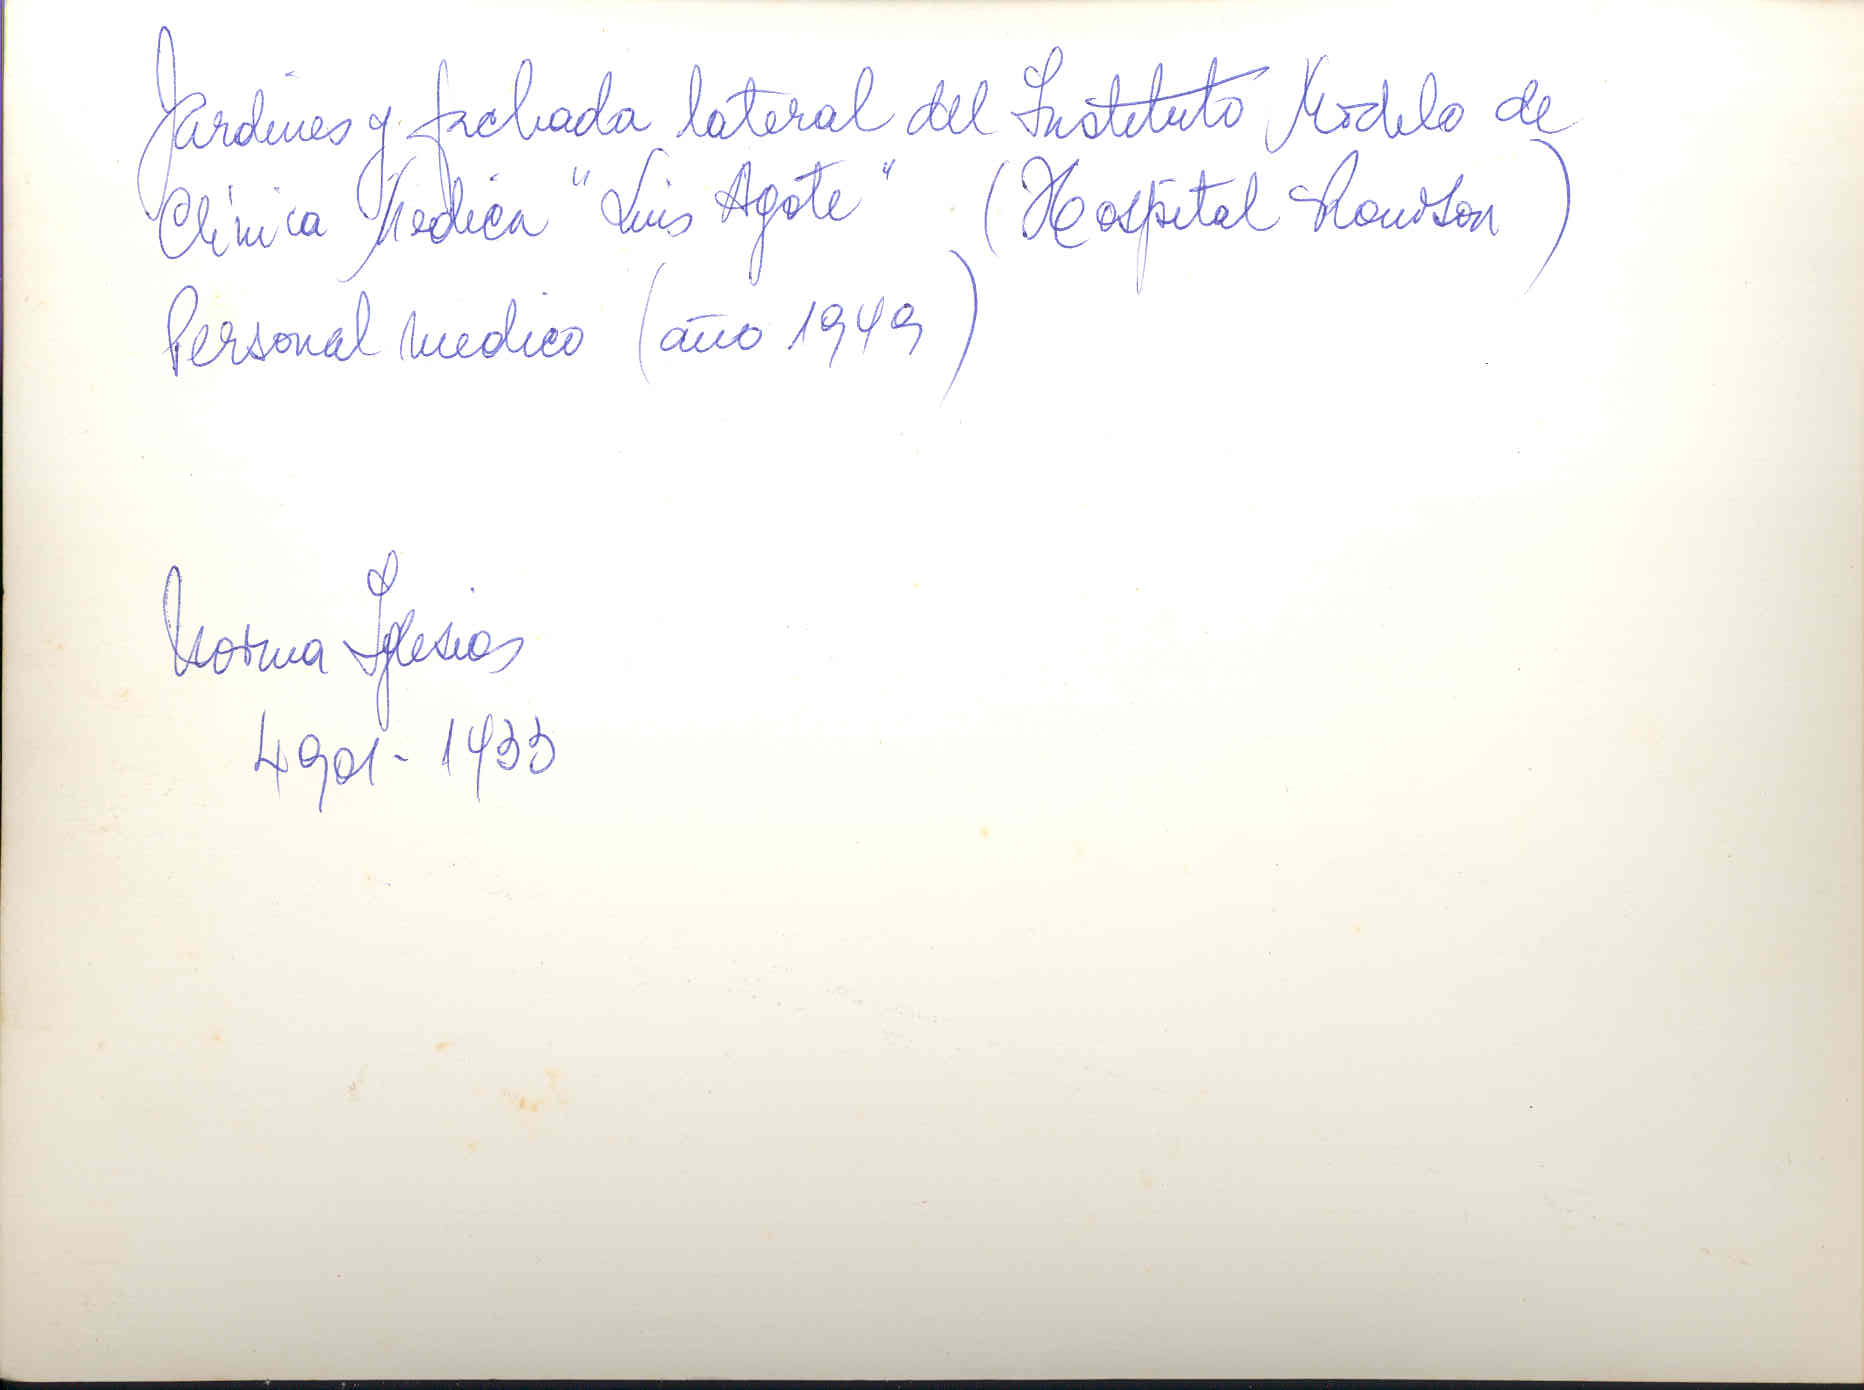 Jardines y fachada lateral del Instituto Modelo de
Clínica Medica "Luis Agote" (Hospital Rawson)
Personal medico (año 1949)
Norma Iglesias
4901-1433